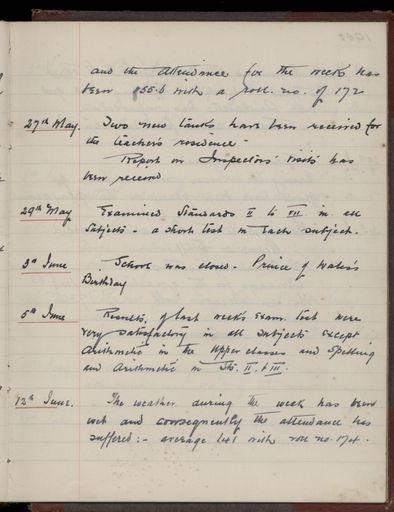 and the attendance for the week has
been 155.6 with a roll. no. of 172
27th May. Two new tanks have been received for
the teacher's residence -
Report on Inspectors' visits has
been received
29th May Examined Standards II to VII in all
Subjects - a short test in each subject.
3d June School was closed - Prince of Wales's
Birthday
5th June Results, of last week's Exam. test were
very satisfactory in all subjects except
Arithmetic in the upper classes and Spelling
and Arithmetic in Sts. II. & III.
12th June. The weather during the week has been
wet and consequently the attendance has
suffered :- average 141 with roll no. 174.